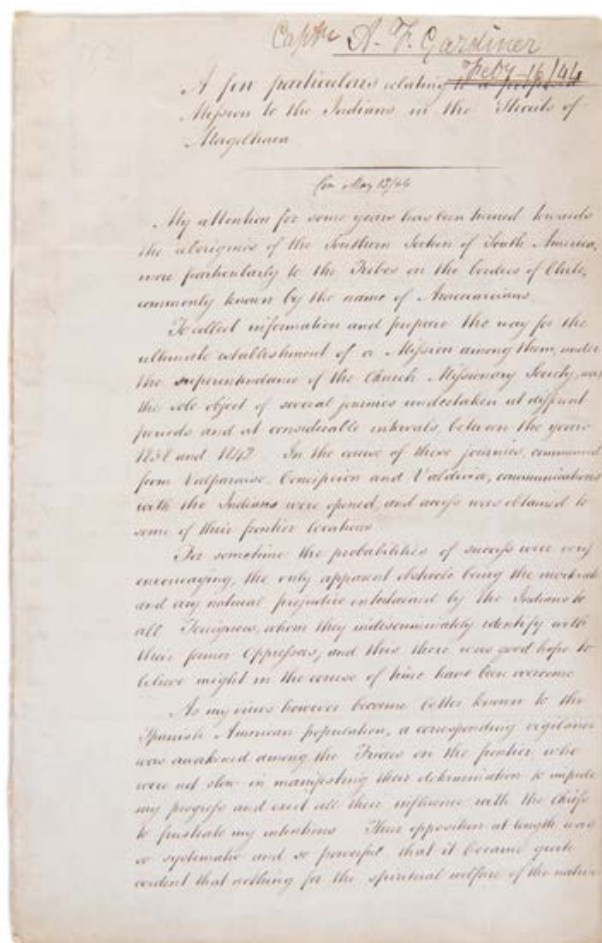 Captn A. F. Gardiner
Feby 16/44
A few particulars relating to a proposed
Mission to the Indians in the Straits of
Magelhaen
Com May 13/44
My attention for some years has been turned towards
the aborigines of the Southern Section of South America,
more particularly to the Tribes on the borders of Chile,
commonly known by the name of Araucarians.
To collect information and prepare the way for the
ultimate establishment of a Mission among them, under
the superintendance of the Church Missionary Society, was
the sole object of several journies undertaken at different
periods and at considerable intervals, between the years
1838 and 1842. In the course of these journies, commenced
from Valparaiso, Concepcion and Valdivia, communications
with the Indians were opened, and access was obtained to
some of their frontier locations.
For sometime the probabilities of success were very
encouraging, the only apparent obstacle being the inveterate
and very natural prejudice entertained by the Indians to
all Foreigners, whom they indiscriminately identify with
their former Oppressors, and this there was good hope to
believe might in the course of time have been overcome.
As my views however became better known to the
Spanish American population, a corresponding vigilance
was awakened among the Friars on the frontier who
were not slow in manifesting their determination to impede
my progress and exert all their influence with the Chiefs
to frustrate my intentions. Their opposition at length was
so systematic and so powerful that it became quite
evident that nothing for the spiritual welfare of the native